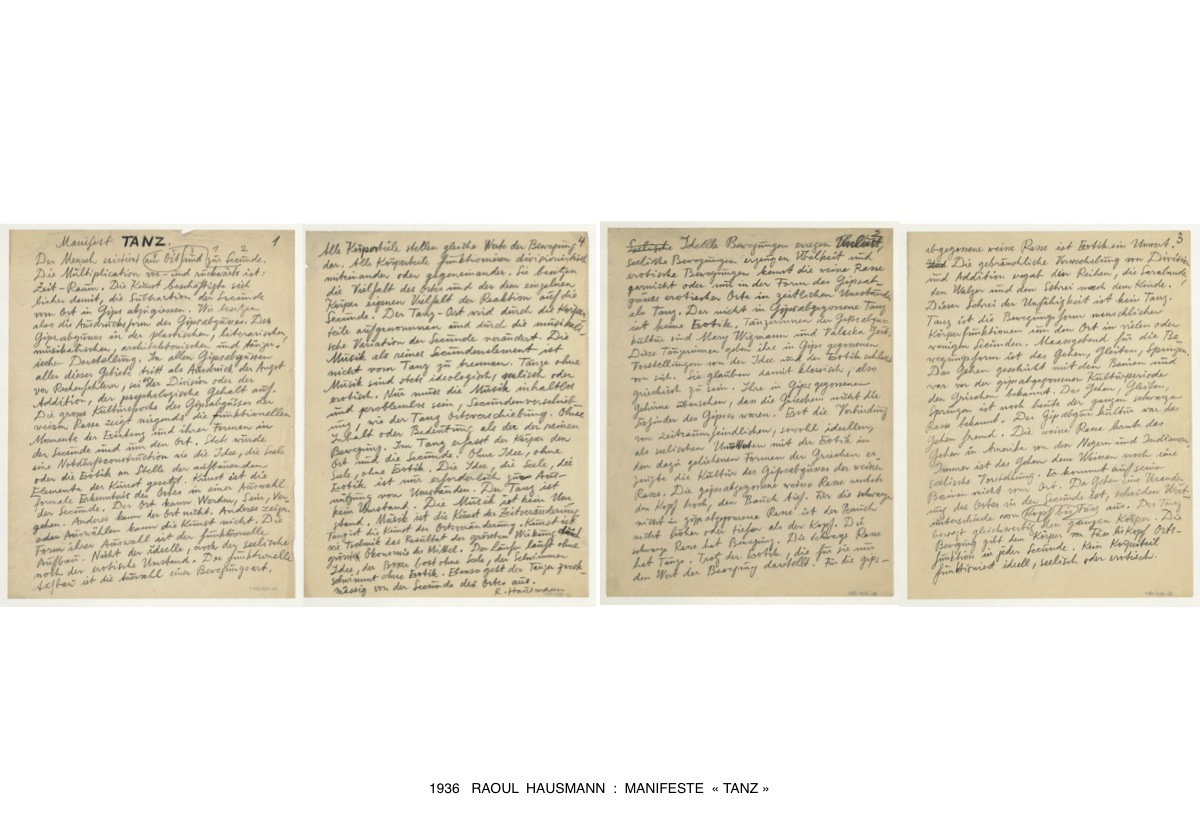 Manifest TANZ. 1
Der Mensch existirt an Ort und zur Secunde. 1 2
Die Multiplication vor- und rückwärts ist:
Zeit-Raum. Die Kunst beschäftigte sich
bisher damit, die Subtraction der Secunde
vom Ort in Gips abzugiessen. Wir besitzen
also die Ausdrucksform des Gipsabgusses. Der
Gipsabguss in der plastischen, literarischen,
musikalischen, architektonischen und tänzer-
ischen Darstellung. In allen Gipsabgüssen
aller dieser Gebiete tritt als Ausdruck der Angst
vor Rechenfehlern, sei es der Division oder der
Addition, der psychologische Gehalt auf.
Die grosse Kulturepoche des Gipsabgusses der
weissen Rasse zeigt nirgends die funktionellen
Momente der Existenz und ihrer Formen in
der Secunde und um den Ort. Stets wurde
eine Notdurftconstruction wie die Idee, die Seele
oder die Erotik an Stelle der aufbauenden
Elemente der Kunst gesetzt. Kunst ist die
formale Erkenntnis des Ortes in einer Auswahl
der Secunde. Der Ort kann Werden, Sein, Ver-
gehen. Anderes kann der Ort nicht. Anderes zeigen
oder Auswählen kann die Kunst nicht. Die
Form ihrer Auswahl ist der funktionelle
Aufbau. Nicht der ideelle, noch der seelische
noch der erotische Umstand. Der funktionelle
Aufbau ist die Auswahl einer Bewegungsart.
Alle Körperteile stellen gleiche Werte der Bewegung 4
dar. Alle Körperteile funktionieren divisionistisch
miteinander oder gegeneinander. Sie besitzen
die Vielfalt des Ortes und der dem einzelnen
Körper eigenen Vielfalt der Reaktion auf die
Secunde. Der Tanz-Ort wird durch die Körper-
teile aufgenommen und durch die musikali-
sche Variation der Secunde verändert. Die
Musik als reines Secundenelement ist
nicht vom Tanz zu trennen. Tänze ohne
Musik sind stets ideologisch, seelisch oder
erotisch. Nur muss die Musik inhaltlos
und problemlos sein, Secundenverschieb-
ung, wie der Tanz Ortsverschiebung. Ohne
Inhalt oder Bedeutung als der der reinen
Bewegung. Im Tanz erfasst der Körper den
Ort und die Secunde. Ohne Idee, ohne
Seele, ohne Erotik. Die Idee, die Seele, die
Erotik ist nur erforderlich zur Aus-
nützung von Umständen. Der Tanz ist
kein Umstand. Die Musik ist kein Um-
stand. Musik ist die Kunst der Zeitveränderung
Tanz ist die Kunst der Ortsveränderung. Kunst ist
wie Technik das Resultat der grössten Wirkung durch
grösste Ökonomie der Mittel. Der Läufer läuft ohne
Idee, der Boxer boxt ohne Seele, der Schwimmer
schwimmt ohne Erotik. Ebenso geht der Tanz zweck-
mässig von der Secunde des Ortes aus.
R. Hausmann
Seelische Ideelle Bewegungen erregen Unlust, 2
seelische Bewegungen erzeugen Übelkeit und
erotische Bewegungen kennt die weisse Rasse
garnicht oder nur in der Form des Gipsab-
gusses erotischer Orte in zeitlichen Umständen
als Tanz. Der nicht in Gips abgegossene Tanz
ist keine Erotik. Tänzerinnen der Gipsabguss-
kultur sind Mary Wigmann und Valeska Gert.
Diese Tänzerinnen geben ihre in Gips gegossenen
Vorstellungen von der Idee und der Erotik
von sich. Sie glauben damit klassisch, also
griechisch zu sein. Ihre in Gips gegossenen
Gehirne übersehen, dass die Griechen nicht die
Erfinder des Gipses waren. Erst die Verbindung
von zeitraumfeindlichen, sowohl ideellen,
als seelischen Umständen mit der Erotik in
den dazu geliehenen Formen der Griechen er-
zeugte die Kultur des Gipsabgusses der weissen
Rasse. Die gipsabgegossene weisse Rasse
den Kopf hoch, den Bauch tief. Für die schwarze
nicht in gips abgegossene Rasse ist der Bauch
nicht höher oder tiefer als der Kopf. Die
schwarze Rasse hat Bewegung. Die schwarze Rasse
hat Tänze. Trotz der Erotik, die für sie nur
den Wert der Bewegung darstellt. Für die gips-
abgegossene weisse Rasse ist Erotik ein Unwert. 3
Und Die gebräuchliche Verwechslung von Division
und Addition ergab den Reihen, die Sarabande,
den Walzer und den Schrei nach dem Kinde.
Dieser Schrei der Unfähigkeit ist kein Tanz.
Tanz ist die Bewegungsform menschlicher
Körperfunktionen um den Ort in vielen oder
wenigen Secunden. Maassgebend für die Be-
wegungsform ist das Gehen, Gleiten, Springen.
Das Gehen geschieht mit den Beinen und
war vor der gipsabgegossenen Kulturperiode
den Griechen bekannt. Das Gehen, Gleiten,
Springen ist noch heute der ganzen schwarzen
Rasse bekannt. Der Gipsabgusskultur war das
Gehen fremd. Die weisse Rasse lernte das
Gehen in Amerika von den Negern und Indianern.
Immer ist das Gehen dem Weissen noch eine
seelische Vorstellung. Er kommt auf seinen
Beinen nicht vom Ort. Da Gehen eine Veränder-
ung des Ortes in der Secunde ist, scheiden Wert-
unterschiede von Kopf bis Fuss aus. Der Tanz
bewegt gleichwertig den ganzen Körper. Die
Bewegung gibt dem Körper von Fuss bis Kopf Orts-
funktion in jeder Secunde. Kein Körperteil
funktioniert ideell, seelisch oder erotisch.
1936 RAOUL HAUSMANN : MANIFESTE « TANZ »